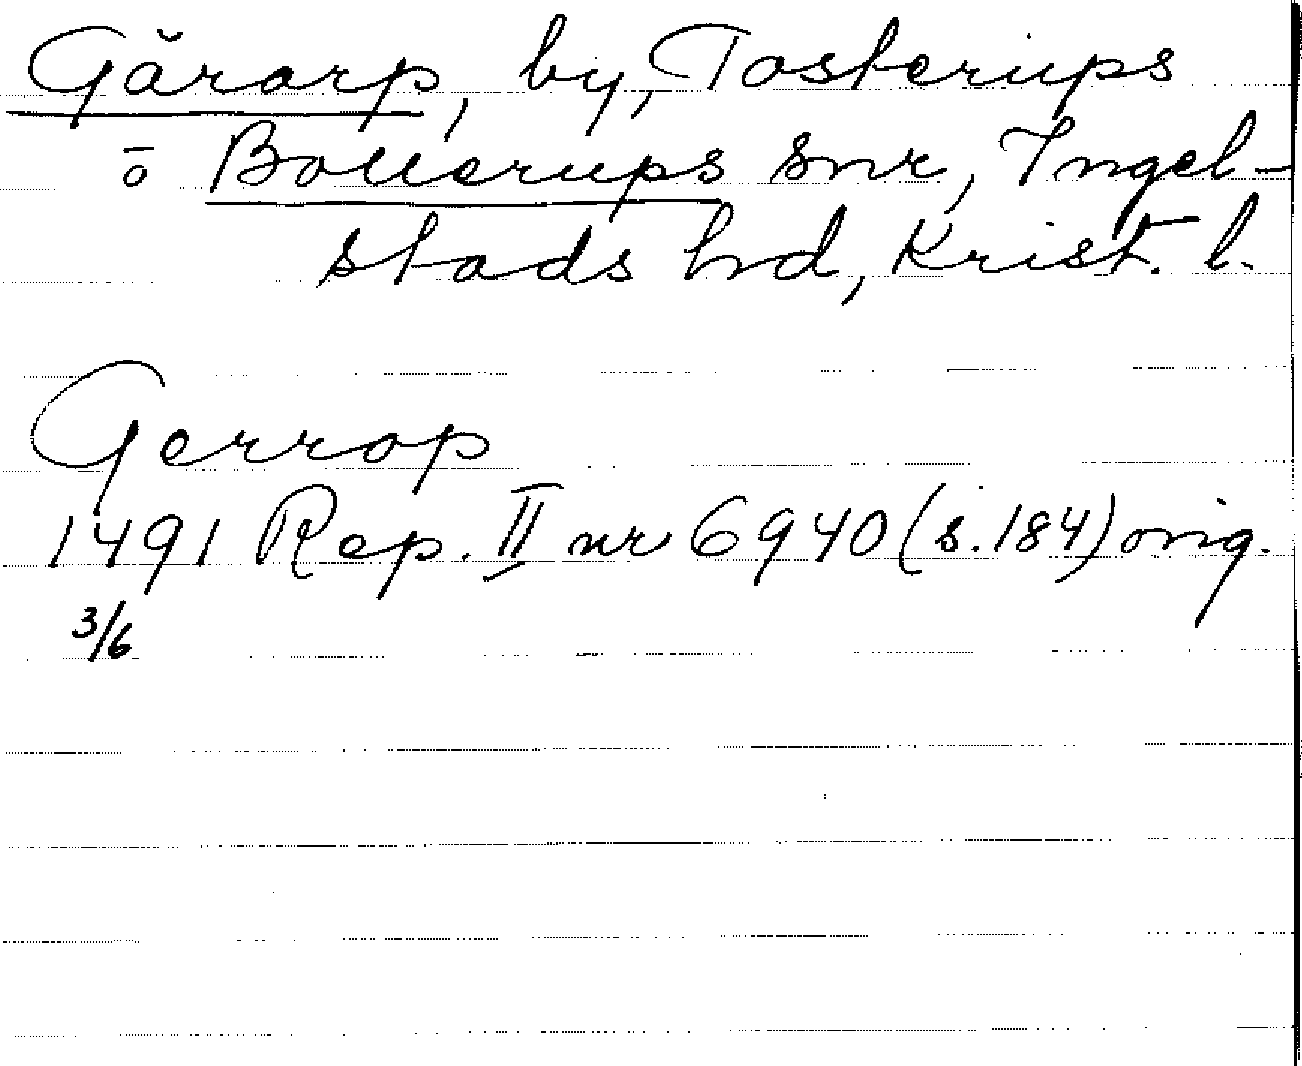 Gårarp, by, Tosterups
ō Bollerups snr, Ingel-
stads hd, Krist. l.
Gerrop
1491 Rep. II nr 6940 (s. 184) orig.
3/6